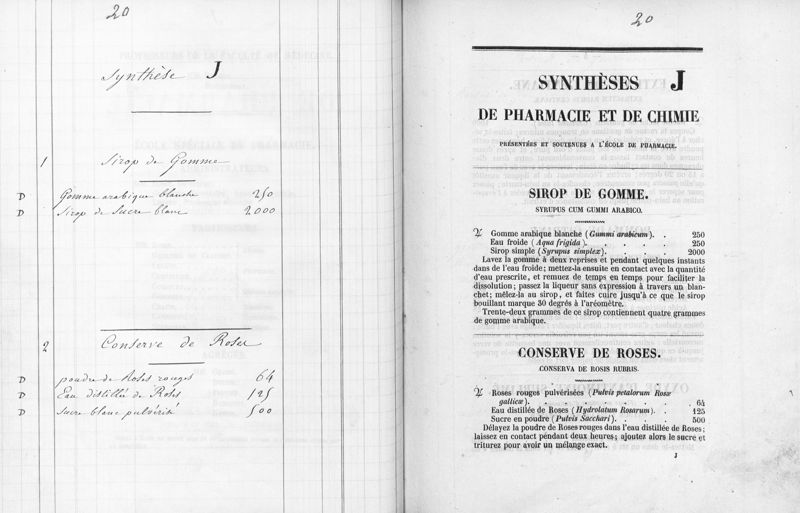 20
Synthèse J
1 Sirop de Gomme
D Gomme arabique blanche 250
D Sirop de Sucre blanc 2000
2 Conserve de Roses
D poudre de Roses rouges 64
D Eau distillée de Roses 125
D Sucre blanc pulvérisé 500
20
SYNTHÈSES J
DE PHARMACIE ET DE CHIMIE
PRÉSENTÉES ET SOUTENUES A L'ÉCOLE DE PHARMACIE.
SIROP DE GOMME.
SYRUPUS CUM GUMMI ARABICO.
♃ Gomme arabique blanche (Gummi arabicum). . 250
Eau froide (Aqua frigida). . . . . 250
Sirop simple (Syrupus simplex). . . . . 2000
Lavez la gomme à deux reprises et pendant quelques instants
dans de l'eau froide; mettez-la ensuite en contact avec la quantité
d'eau prescrite, et remuez de temps en temps pour faciliter la
dissolution; passez la liqueur sans expression à travers un blan-
chet; mêlez-la au sirop, et faites cuire jusqu'à ce que le sirop
bouillant marque 30 degrés à l'aréomètre.
Trente-deux grammes de ce sirop contiennent quatre grammes
de gomme arabique.
CONSERVE DE ROSES.
CONSERVA DE ROSIS RUBRIS.
♃ Roses rouges pulvérisées (Pulvis petalorum Rosæ
gallicæ). . . . . . . . 64
Eau distillée de Roses (Hydrolatum Rosarum). . 125
Sucre en poudre (Pulvis Sacchari). . . . 500
Délayez la poudre de Roses rouges dans l'eau distillée de Roses;
laissez en contact pendant deux heures; ajoutez alors le sucre et
triturez pour avoir un mélange exact.
J